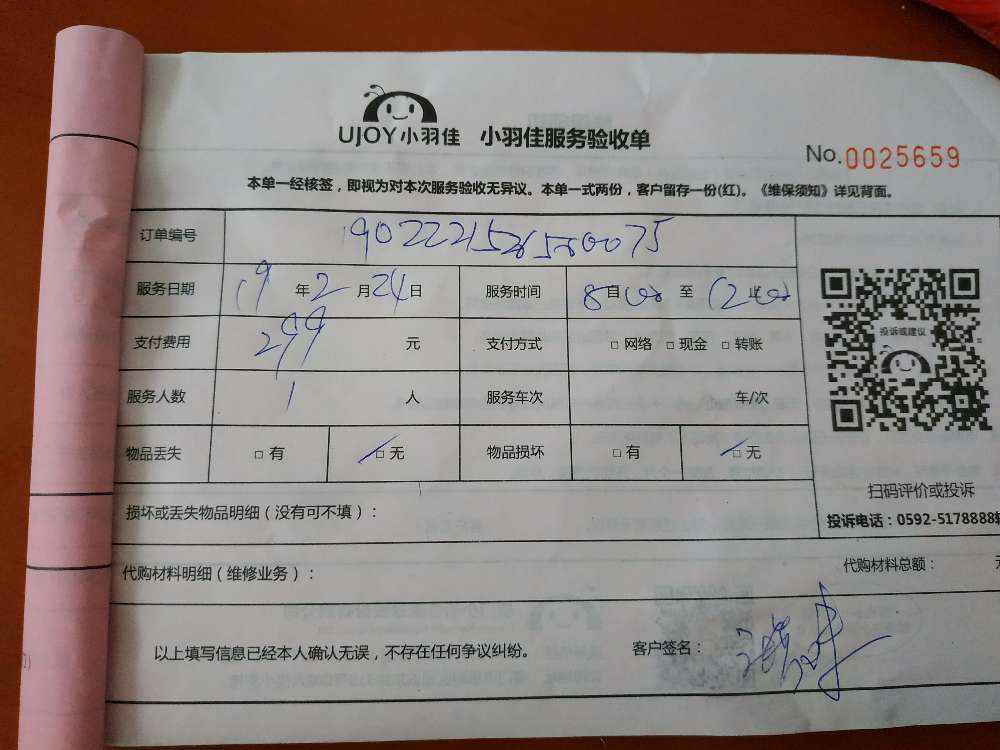 UJOY小羽佳 小羽佳服务验收单
No.0025659
本单一经核签，即视为对本次服务验收无异议。本单一式两份，客户留存一份(红)。《维保须知》详见背面。
订单编号
服务日期 19 年 2 月 24 日 服务时间 8:00 至 12:00
支付费用 299 元 支付方式 □ 网络 □ 现金 □ 转账
投诉或建议
服务人数 1 人 服务车次 车/次
物品丢失 □ 有 □ 无 物品损坏 □ 有 □ 无
扫码评价或投诉
投诉电话：0592-5178888转
损坏或丢失物品明细（没有可不填）：
代购材料明细（维修业务）： 代购材料总额：
以上填写信息已经本人确认无误，不存在任何争议纠纷。 客户签名：